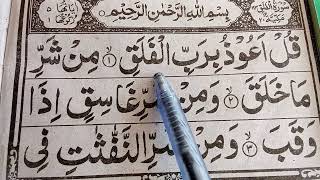 بِسْمِ اللّٰهِ الرَّحْمٰنِ الرَّحِيْمِ
قُلْ اَعُوْذُ بِرَبِّ الْفَلَقِ ۙ﴿۱﴾ مِنْ شَرِّ
مَا خَلَقَ ۙ﴿۲﴾ وَمِنْ شَرِّ غَاسِقٍ اِذَا
وَقَبَ ۙ﴿۳﴾ وَمِنْ شَرِّ النَّفّٰثٰتِ فِی